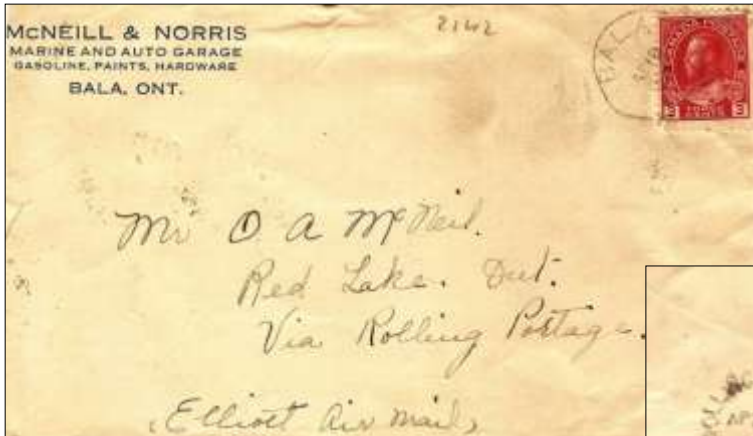 McNEILL & NORRIS
MARINE AND AUTO GARAGE
GASOLINE, PAINTS, HARDWARE
BALA, ONT.
2142
BALA
CANADA POSTAGE
3 THREE CENTS 3
Mr O A McNeil.
Red Lake. Ont.
Via Rolling Portage.
(Elliott Air mail)